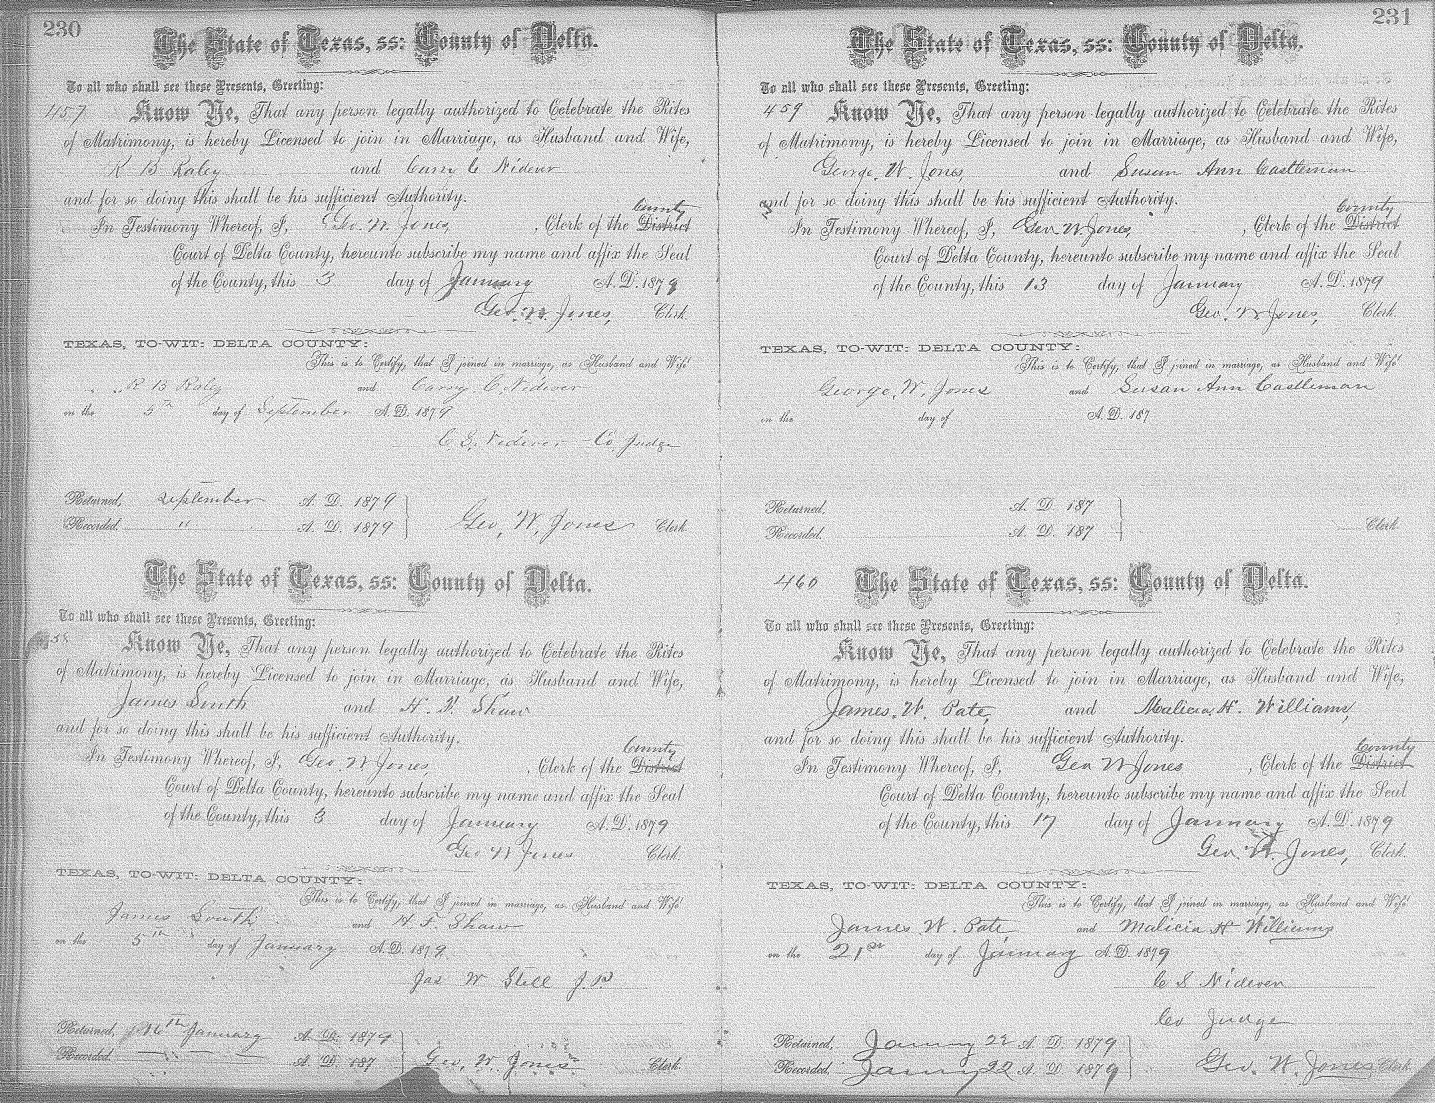 230
The State of Texas, ss: County of Delta.
To all who shall see these Presents, Greeting:
457 Know Ye, That any person legally authorized to Celebrate the Rites
of Matrimony, is hereby Licensed to join in Marriage, as Husband and Wife,
R B Raley and Carry C Nidever
and for so doing this shall be his sufficient Authority.
In Testimony Whereof, I, Geo. W. Jones, Clerk of the County District
Court of Delta County, hereunto subscribe my name and affix the Seal
of the County, this 3 day of January A.D. 1879
Geo. W. Jones, Clerk.
TEXAS, TO-WIT: DELTA COUNTY:
This is to Certify, that I joined in marriage, as Husband and Wife
R B Raley and Carry C. Nidever
on the 5th day of September A.D. 1879
C. S. Nidever Co. Judge
Returned, September A. D. 1879
Recorded. " A. D. 1879 Geo, W, Jones Clerk
The State of Texas, ss: County of Delta.
To all who shall see these Presents, Greeting:
58 Know Ye, That any person legally authorized to Celebrate the Rites
of Matrimony, is hereby Licensed to join in Marriage, as Husband and Wife,
James South and H. F. Shaw
and for so doing this shall be his sufficient Authority.
In Testimony Whereof, I, Geo. W Jones, Clerk of the County District
Court of Delta County, hereunto subscribe my name and affix the Seal
of the County, this 3 day of January A.D. 1879
Geo W Jones Clerk.
TEXAS, TO-WIT: DELTA COUNTY:
This is to Certify, that I joined in marriage, as Husband and Wife
James South and H. F. Shaw
on the 5th day of January A.D. 1879
Jas W Stell J.P
Returned, 16th January A. D. 1879
Recorded. " A. D. 187 Geo, W. Jones Clerk.
231
The State of Texas, ss: County of Delta.
To all who shall see these Presents, Greeting:
459 Know Ye, That any person legally authorized to Celebrate the Rites
of Matrimony, is hereby Licensed to join in Marriage, as Husband and Wife,
George. W. Jones, and Susan Ann Castleman
and for so doing this shall be his sufficient Authority.
In Testimony Whereof, I, Geo W. Jones, Clerk of the County District
Court of Delta County, hereunto subscribe my name and affix the Seal
of the County, this 13 day of January A.D. 1879
Geo. W Jones, Clerk.
TEXAS, TO-WIT: DELTA COUNTY:
This is to Certify, that I joined in marriage, as Husband and Wife
George. W, Jones and Susan Ann Castleman
on the day of A.D. 187
Returned, A. D. 187
Recorded. A. D. 187 Clerk
460 The State of Texas, ss: County of Delta.
To all who shall see these Presents, Greeting:
Know Ye, That any person legally authorized to Celebrate the Rites
of Matrimony, is hereby Licensed to join in Marriage, as Husband and Wife,
James. W. Pate, and Malicia. H. Williams,
and for so doing this shall be his sufficient Authority.
In Testimony Whereof, I, Geo W Jones, Clerk of the County District
Court of Delta County, hereunto subscribe my name and affix the Seal
of the County, this 17 day of January A.D. 1879
Geo. W. Jones, Clerk.
TEXAS, TO-WIT: DELTA COUNTY:
This is to Certify, that I joined in marriage, as Husband and Wife
James. W. Pate, and Malicia H Williams
on the 21st day of January A.D. 1879
C S Nidever
Co Judge
Returned, January 22 A. D. 1879
Recorded, January 22 A. D. 1879 Geo. W. Jones Clerk